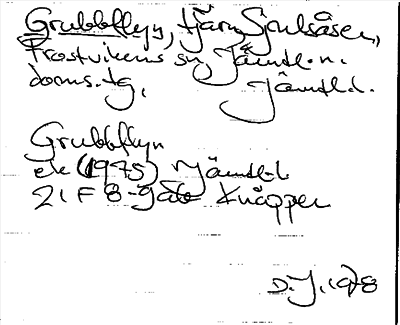 Grubbflyn, tjärn, Sjoulsåsen,
Frostvikens sn, Jämtl. n.
doms. tg, Jämtl.l.
Grubbflyn
ek (1975) Jämtl.
21 F 8-9 a b Knäppen
D.J. 1978